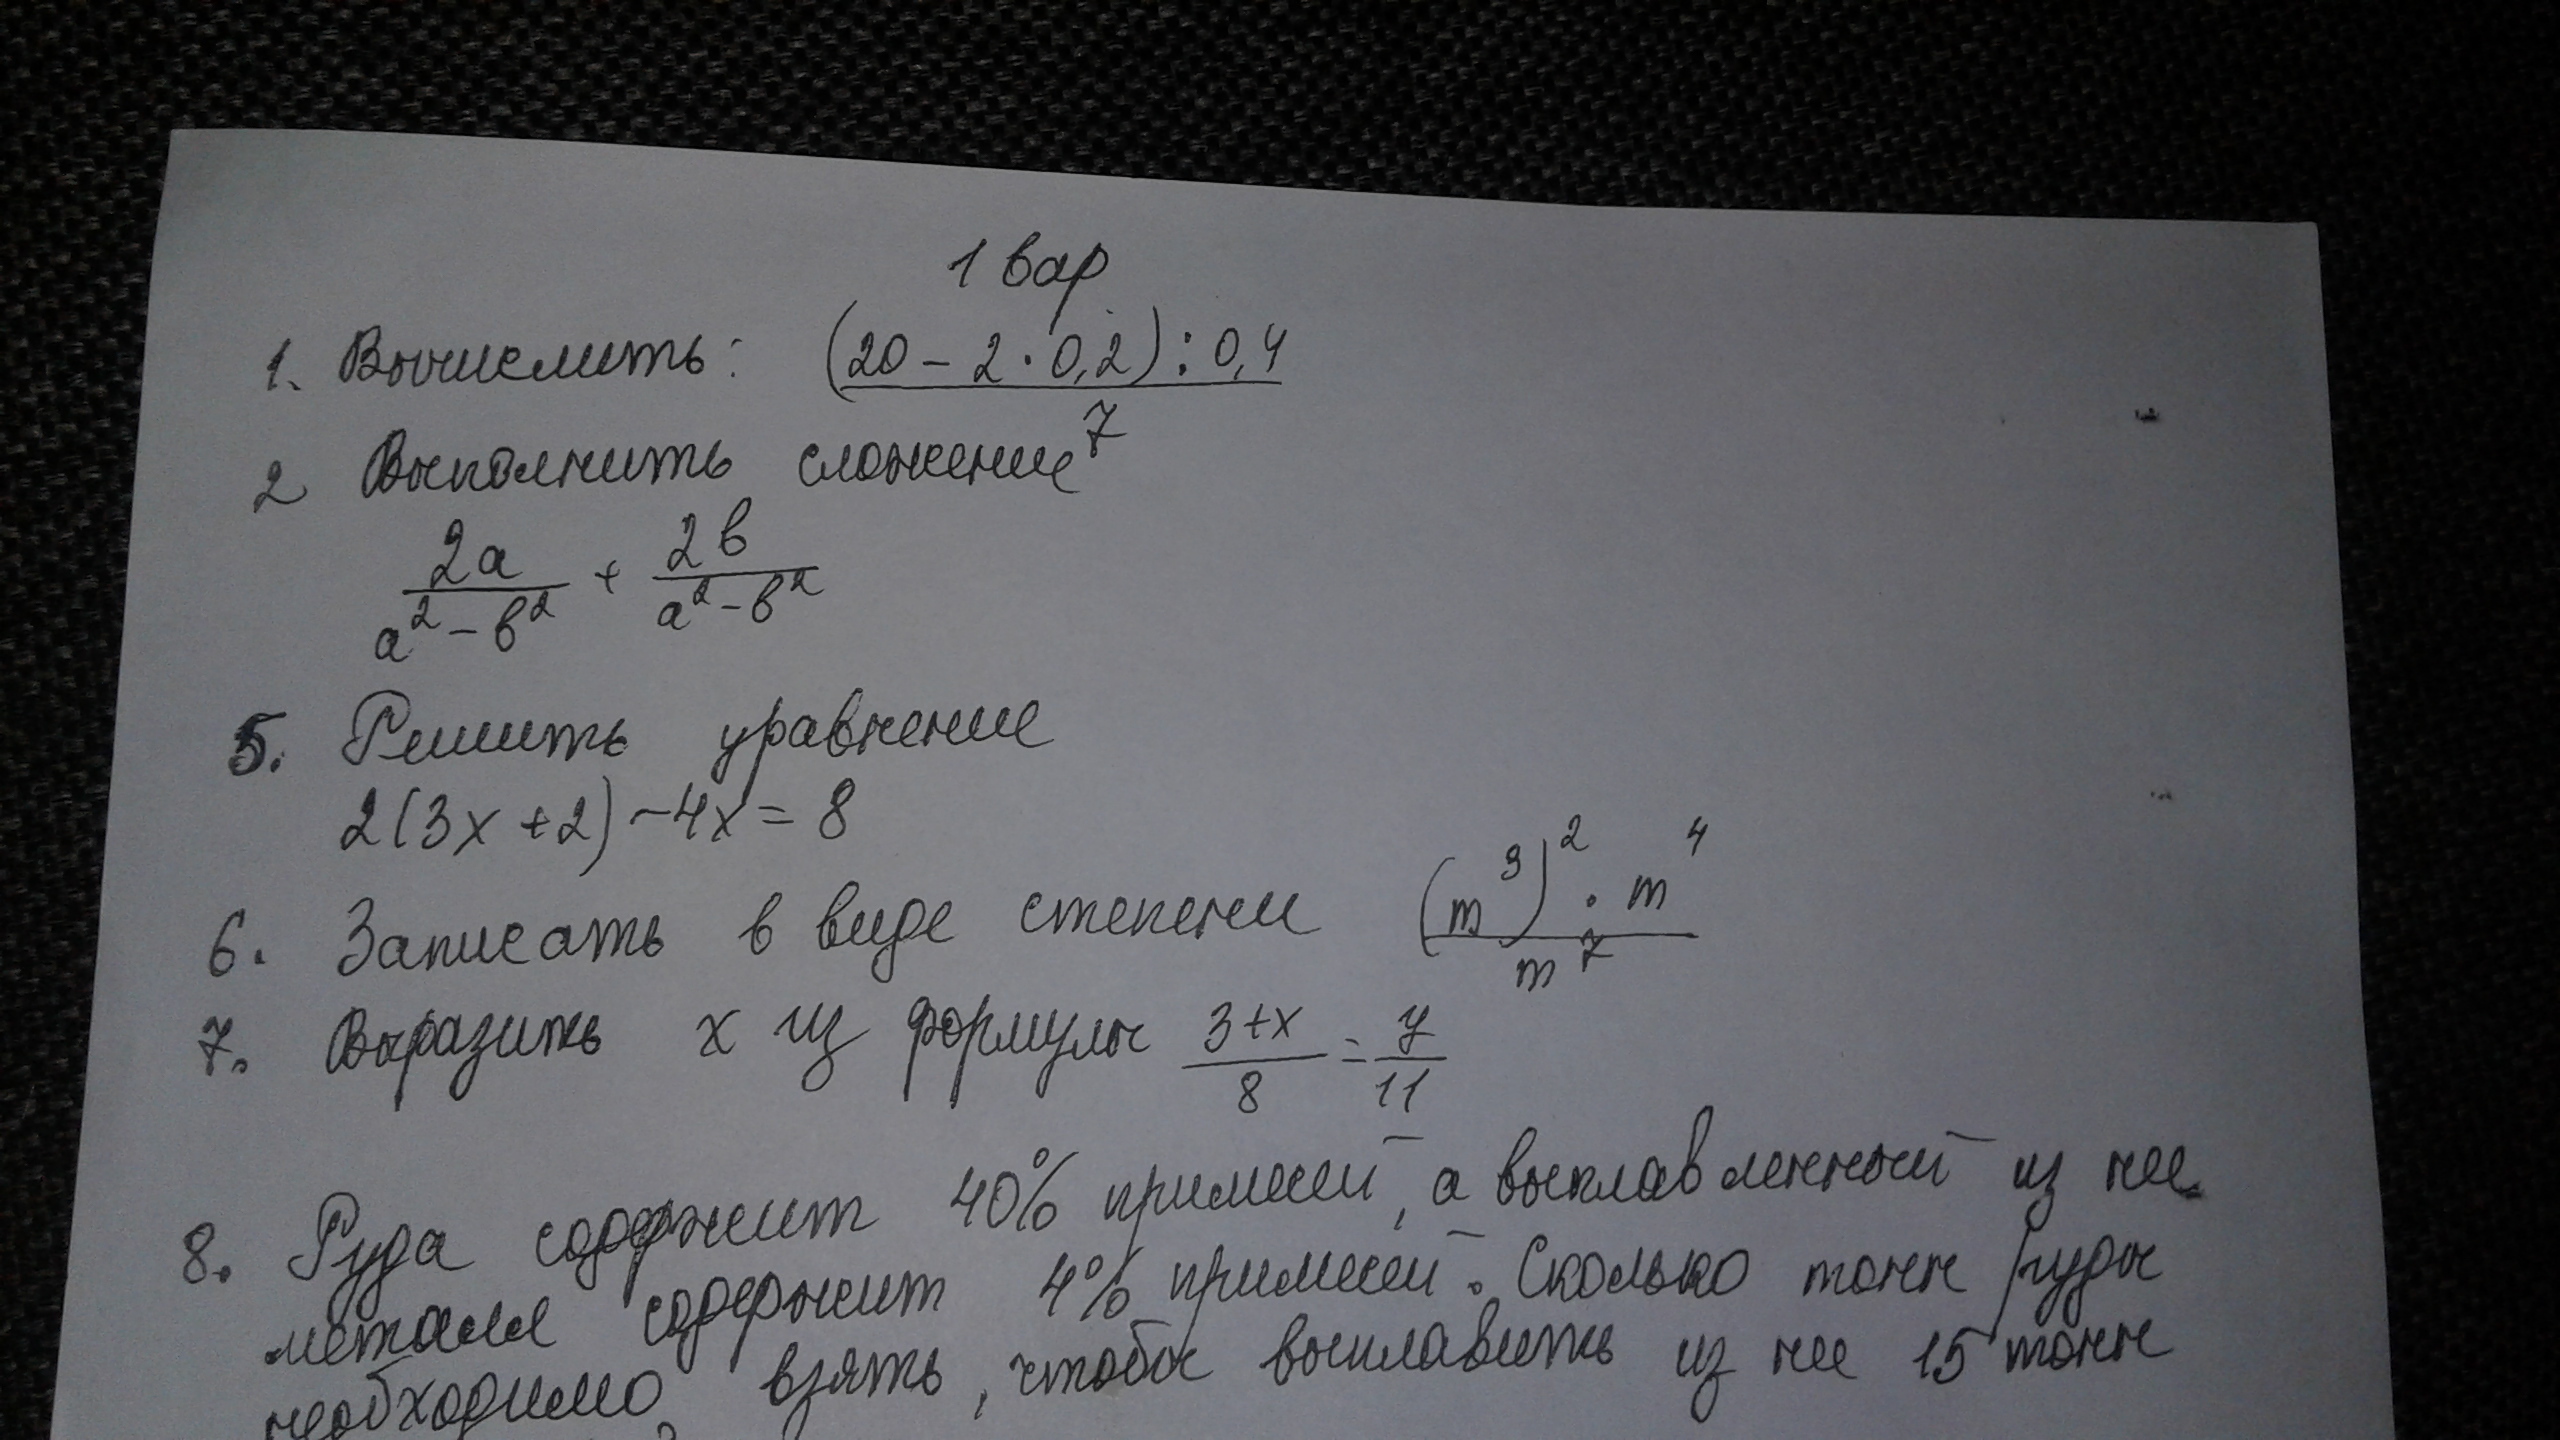 1 вар
1. Вычислить: (20 - 2 · 0,2) : 0,4
7
2 Выполнить сложение
2а/а²-в² + 2в/а²-в²
5. Решить уравнение
2(3х+2)-4х=8
6. Записать в виде степени (m³)² · m⁴ / m⁷
7. Выразить х из формулы 3+х/8 = у/11
8. Руда содержит 40% примесей, а выплавленный из нее
металл содержит 4% примесей. Сколько тонн руды
необходимо взять, чтобы выплавить из нее 15 тонн